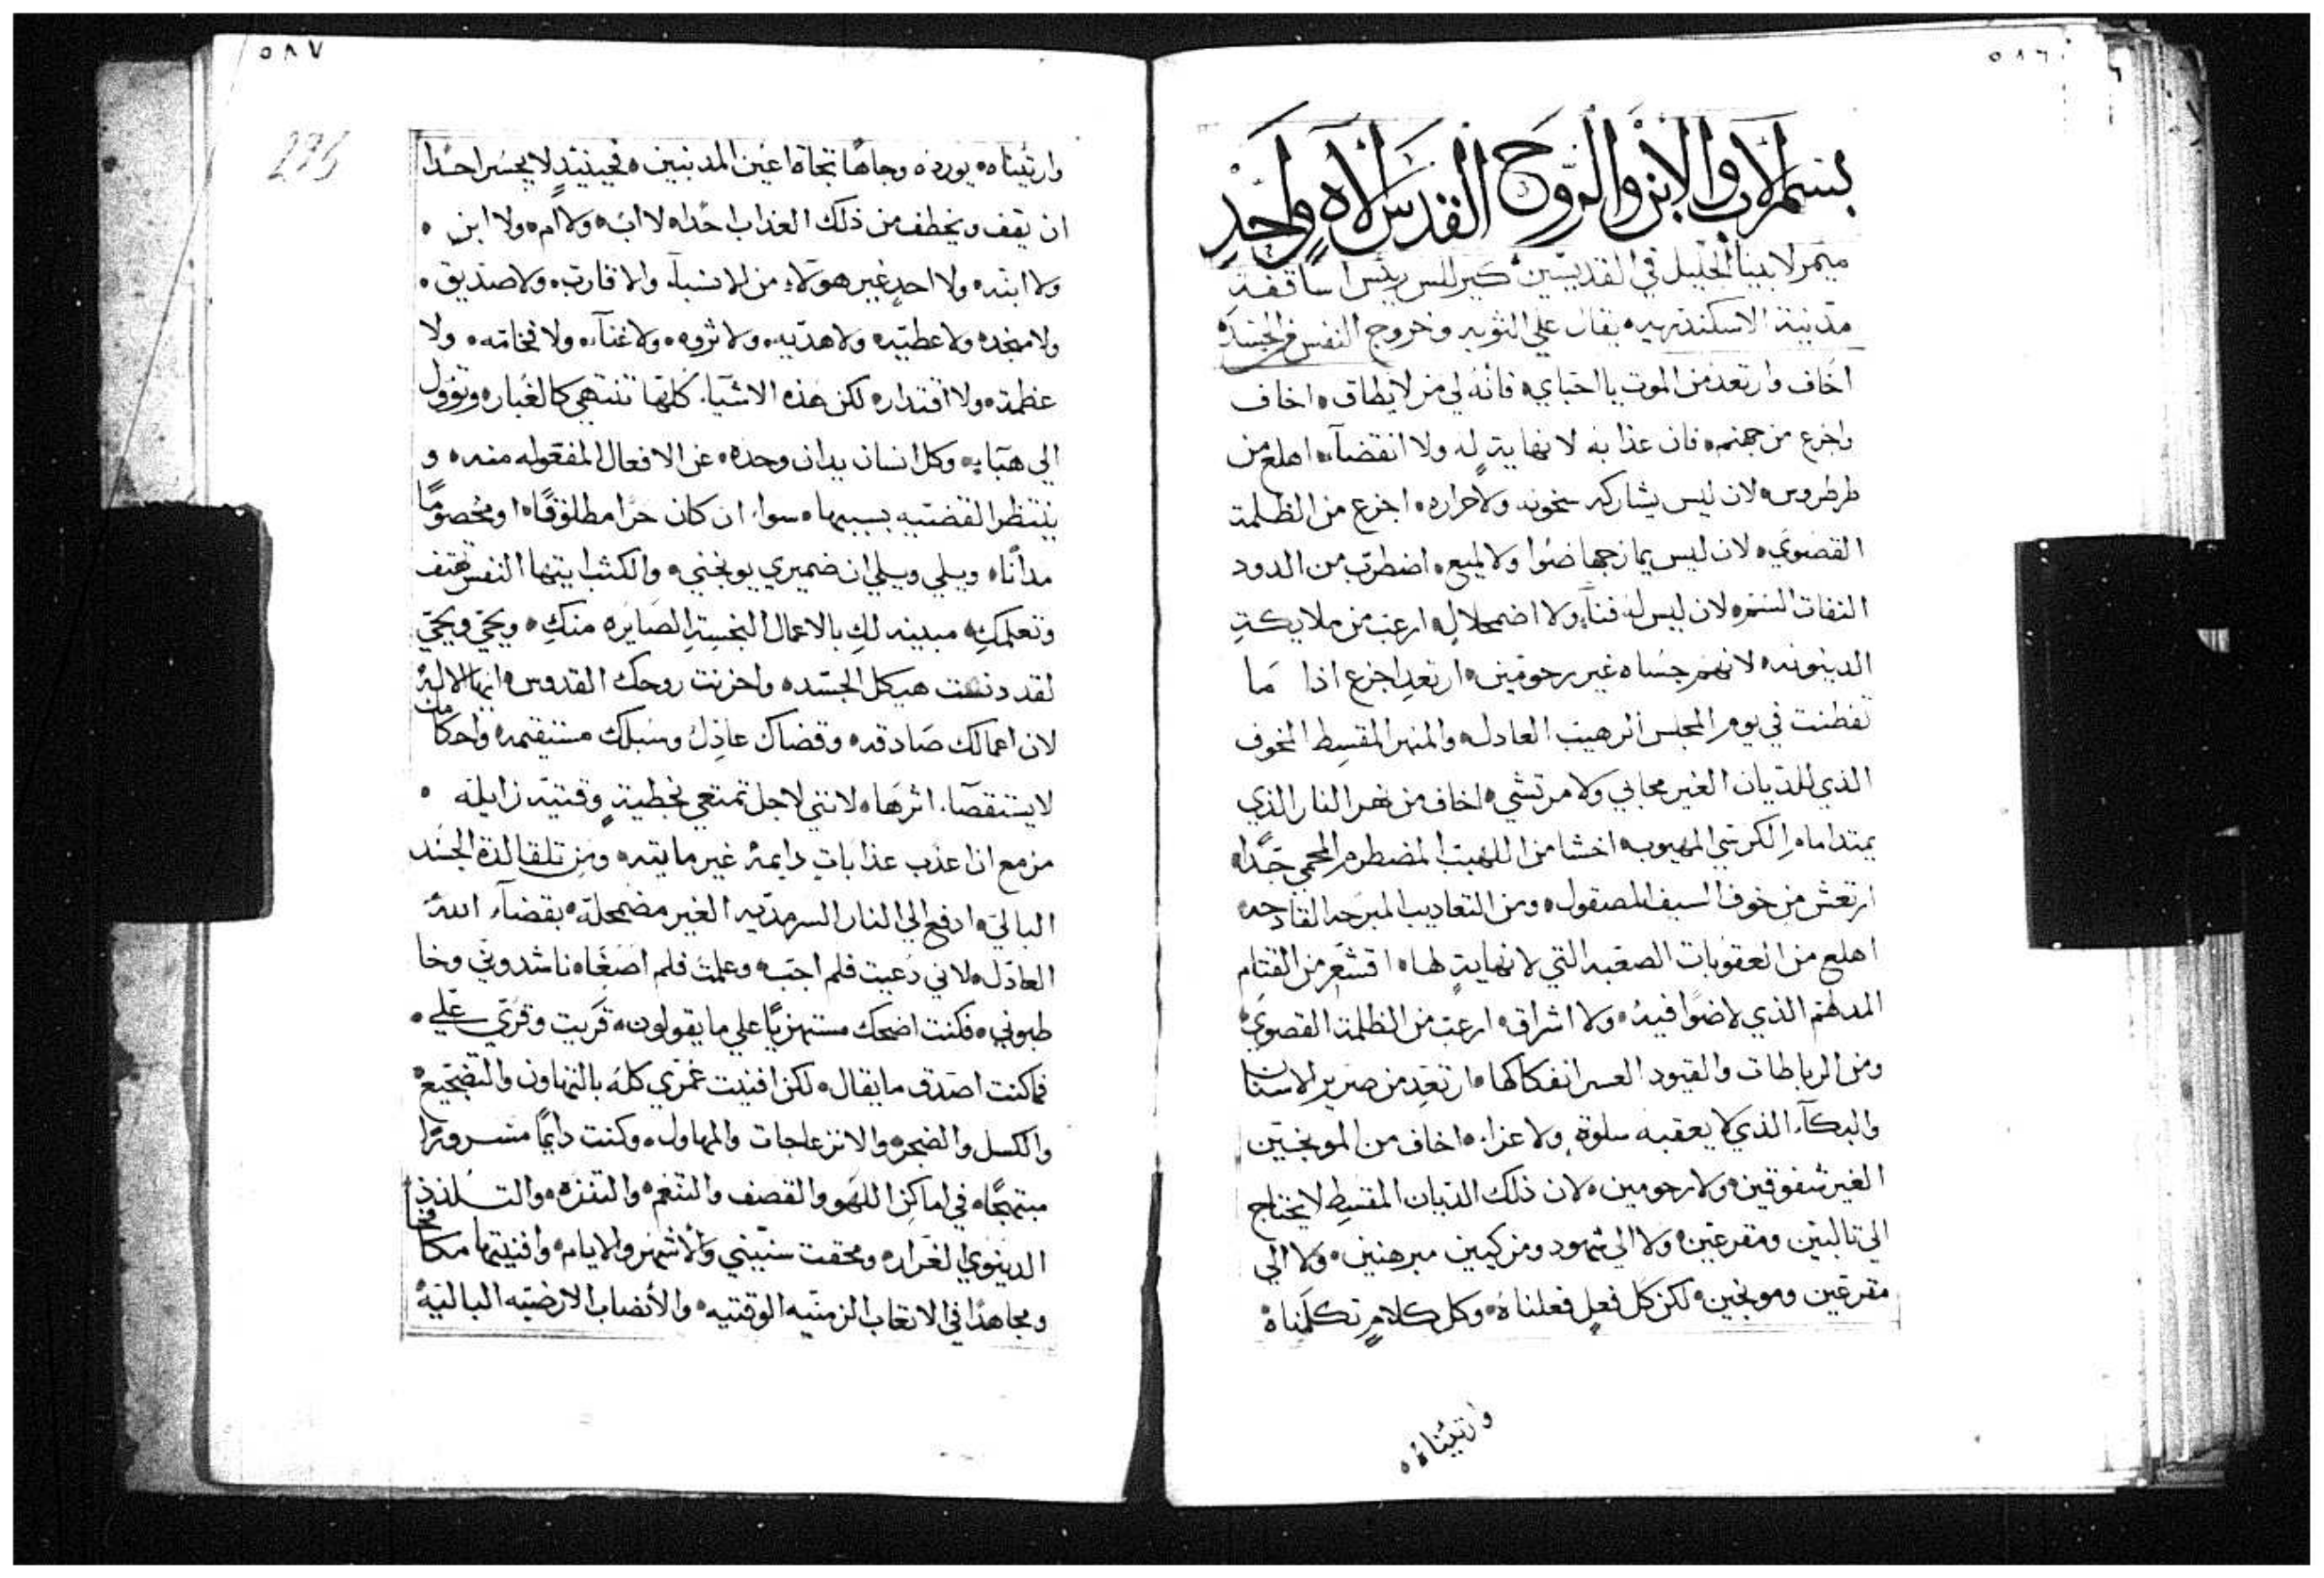 ٥٨٦
بسم الاب والابن والروح القدس الاه واحد
ميمر لابينا الجليل في القديسين كيرللس رييس اساقفة
مدينة الاسكندريه يقال علي التوبه وخروج النفس من الجسد
اخاف وارتعد من الموت يا احباي، فانه لي مر لا يطاق، اخاف
واجزع من جهنم، فان عذابه لا نهاية له ولا انقضآ، اهلع من
طرطروس، لان ليس يشاركه سخونه ولا حراره، اجزع من الظلمة
القصوي، لان ليس يمازجها ضوا ولا لميع، اضطرب من الدود
النفاث السم، لان ليس له فنآ ولا اضمحلال، ارعب من ملايكة
الدينونه، لانهم جساه غير رحومين، ارتعد اجزع اذا ما
تفطنت في يوم المجلس الرهيب العادل، والمنبر المقسط المخوف
الذي للديان الغير محابي ولا مرتشي، اخاف من نهر النار الذي
يمتد امام الكرسي المهيوب، اخشا من اللهيب المضطرم المحمي جدا،
ارتعش من خوف السيف المصقول، ومن التعاديب المبرحه القادحه،
اهلع من العقوبات الصعبه التي لا نهاية لها، اقشعر من القتام
المدلهم الذي لا ضوا فيه، ولا اشراق، ارعب من الظلمة القصوي،
ومن الرباطات والقيود العسر انفكاكها، ارتعد من صرير الاسنان
والبكآ الذي لا يعقبه سلوة ولا عزا، اخاف من الموبخين
الغير شفوقين، ولا رحومين، لان ذلك الديان المقسط لا يحتاج
الي تالبين ومقرعين، ولا الي شهود ومزكيين مبرهنين، ولا الي
مقرعين وموبخين، لكن كل فعل فعلناه، وكل كلام تكلمناه،
وارتيناه،
٥٨٧
وارتيناه، يورده وجاها تجاة اعين المدنبين، فحينيذ لا يجسر احدا
ان يقف ويخطف من ذلك العذاب احدا، لا اب، ولا ام، ولا ابن،
ولا ابنه، ولا احد غير هولاء من الانسبآ، والاقارب، ولا صديق،
ولا منجده ولا عطيه، ولا هديه، ولا ثروه، ولا غنآ، ولا فخامه، ولا
عظمة، ولا اقتدار، لكن هذه الاشيا كلها تنتهي كالغبار، وتوول
الي هبايه، وكل انسان يدان وحده، عن الافعال المفعوله منه، و
ينتظر القضيه بسببها، سوا ان كان حرا مطلوقا، او مخصوما
مدانا، ويلي ويلي ان ضميري يوبخني، والكتب ايتها النفس تهتف
وتعلمك، مبينه لك بالاعمال النجسة الصايره منك، ويحي ويحي
لقد دنست هيكل الجسد، واحزنت روحك القدوس، ايها الاله
لان اعمالك صادقه، وقضاك عادل وسبلك مستقيمه، واحكامك
لا يستقصا اثرها، لانني لاجل تمتعي بخطية وقتيه زايله،
مزمع ان اعذب عذابات دايمه غير مايته، ومن تلقا لذة الجسد
الباليه، ادفع الي النار السرمديه الغير مضمحله، بقضآ الله
العادل، لاني دعيت فلم اجب، وعلمت فلم اصغا، ناشدوني وخا
طبوني، فكنت اضحك مستهزيا علي ما يقولون، قريت وقري علي،
فما كنت اصدق ما يقال، لكن افنيت عمري كله بالتهاون والتضجيع،
والكسل والضجر، والانزعاجات والمهاول، وكنت دايما مسرورا
مبتهجا، في اماكن اللهو والقصف والتنعم، والتنزه، والتلذذ
الدينوي الغرار، ومحقت سنيني والاشهر والايام، وافنيتها مكافحا
ومجاهدا في الاتعاب الزمنيه الوقتيه، والانصاب الارضيه الباليه